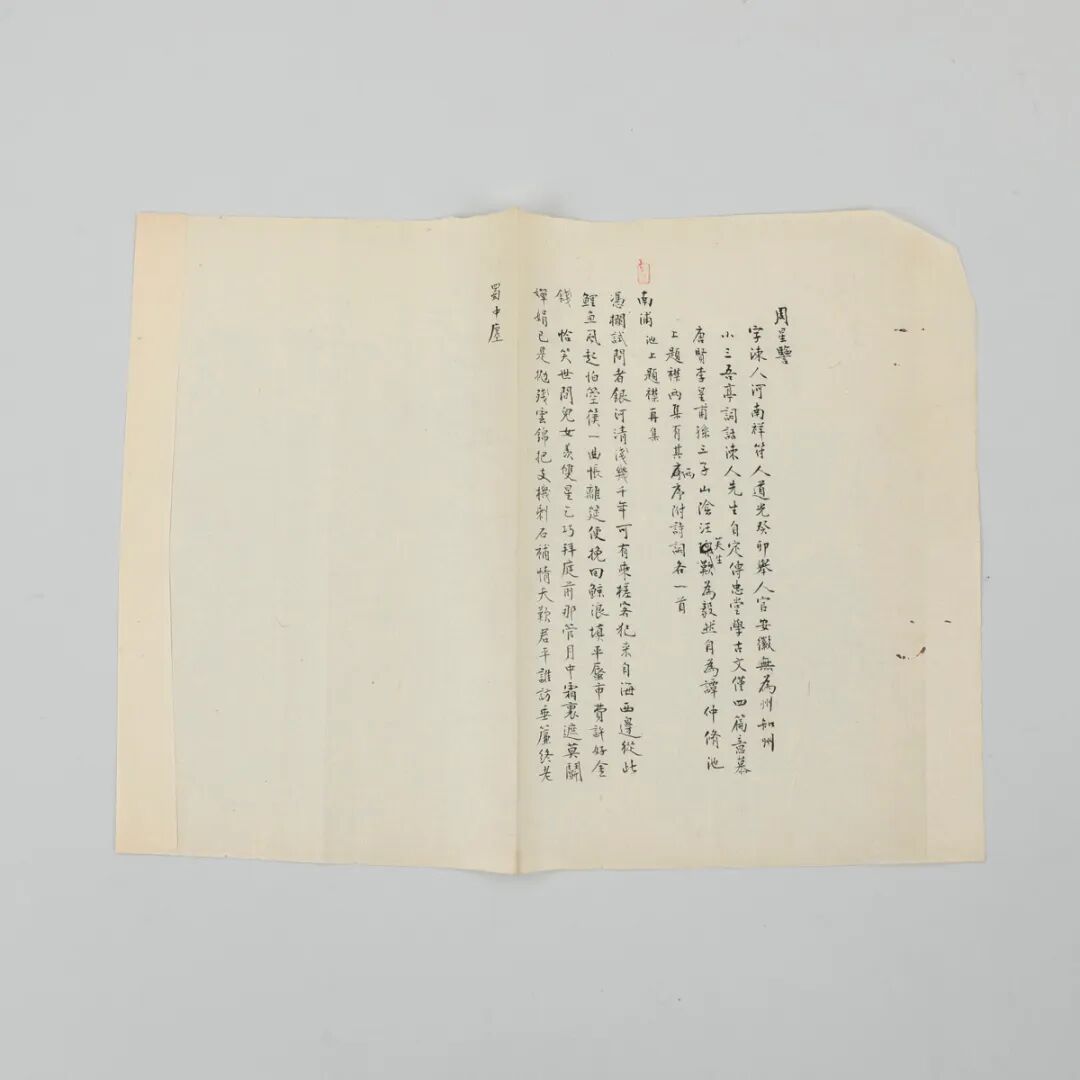 周星鑒
字涑人河南祥符人道光癸卯舉人官安徽無為州知州
小三吾亭詞話涑人先生自定傳忠堂學古文僅四篇意慕
唐賢李皇甫孫三子山陰汪 歎為毅然自為譚仲脩池
芙生
上題襟兩集有其 序附詩詞各一首
南浦 池上題襟再集
憑欄試問者銀河清淺幾千年可有乘槎客犯来自海西邊從此
鯉魚風起怕箜篌一曲悵離筵便挽回鯨浪填平蜃市費許好金
錢 恰笑世間兒女羨雙星乞巧拜庭前那管月中霜裏遮莫鬬
嬋娟已是拋殘雲錦把支機剩石補情天歎君平誰訪垂簾終老
蜀中廛